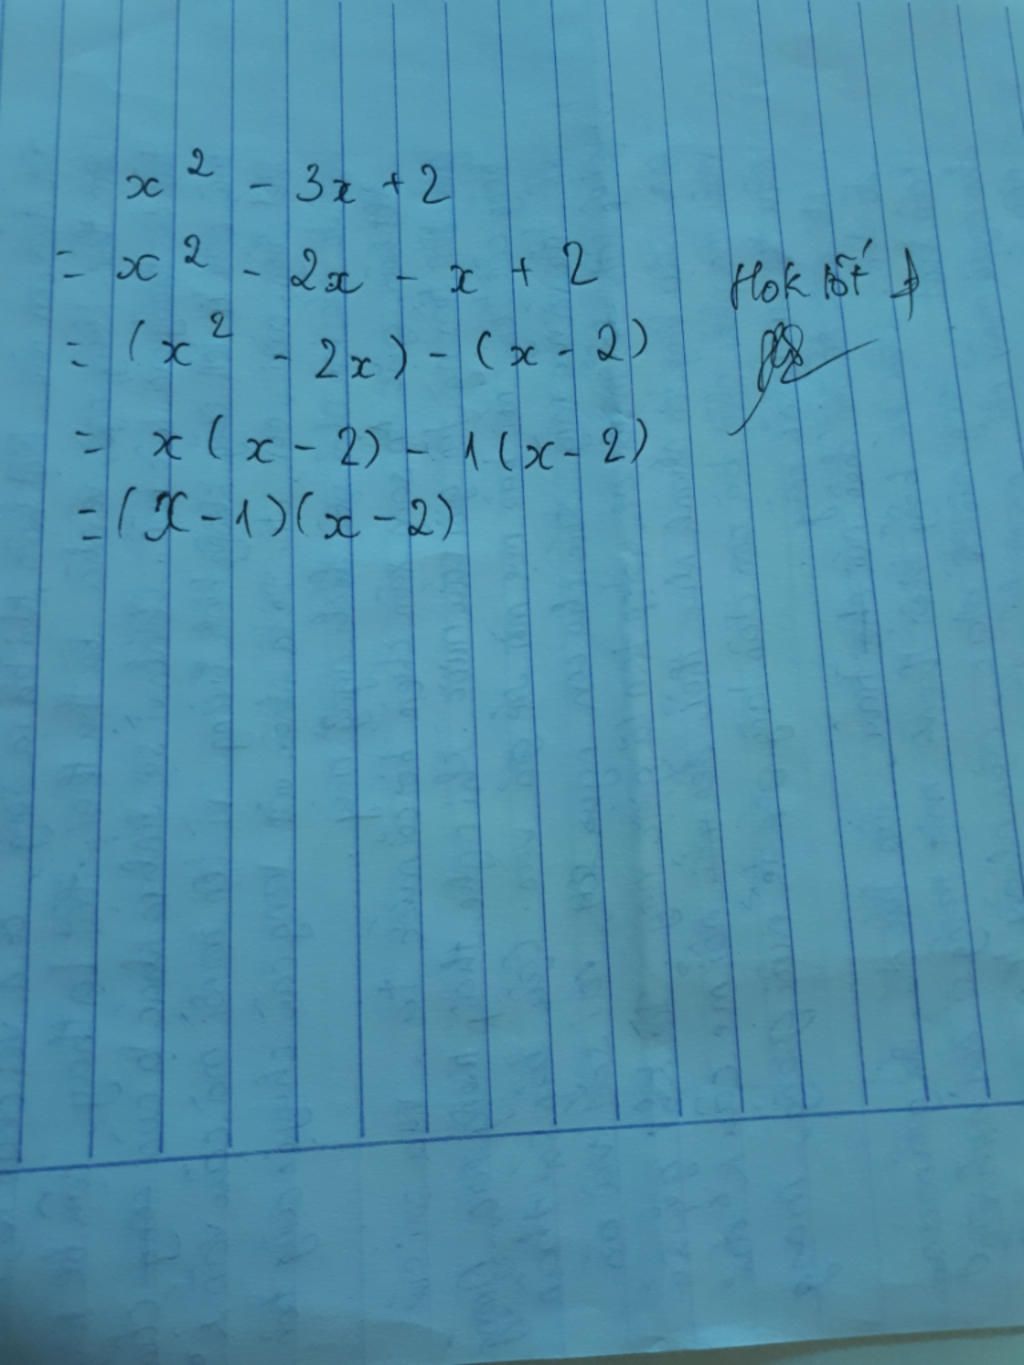 x² - 3x + 2
= x² - 2x - x + 2
= (x² - 2x) - (x - 2)
= x(x - 2) - 1(x - 2)
= (x - 1)(x - 2)
Hok tốt